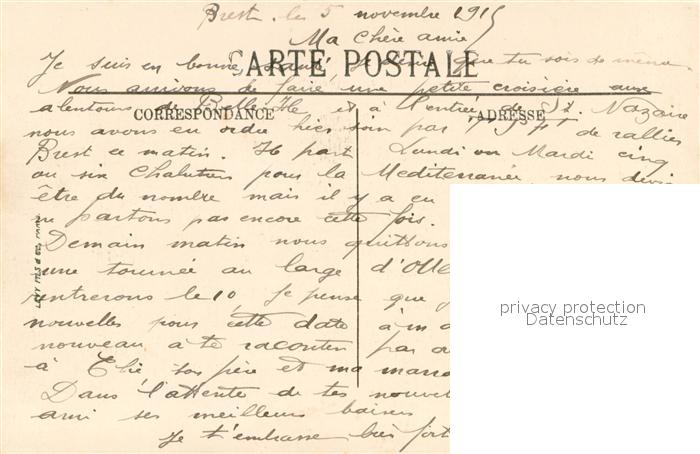 Brest, les 5 novembre 1915
Ma chère amie
Je suis en bonne santé, je désire que tu sois de même.
CARTE POSTALE
Nous arrivons de faire une petite croisière aux
alentours de Belle-Ile et à l'entrée de St Nazaire
CORRESPONDANCE
ADRESSE
nous avons eu ordre hier soir par T.S.F. de rallier
Brest ce matin. Il part Lundi ou Mardi cinq
ou six Chalutiers pour la Mediterranée, nous
être du nombre mais il y a eu
ne partons pas encore cette fois.
Demain matin nous quittons
une tournée au large d'
rentrerons le 10, je pense que
nouvelles pour cette date à m
nouveau à te raconter par
à ton père et ma
Dans l'attente de tes
ami ses meilleurs baisers
Je t'embrasse bien fort
LEVY FILS & CIE, PARIS
privacy protection
Datenschutz